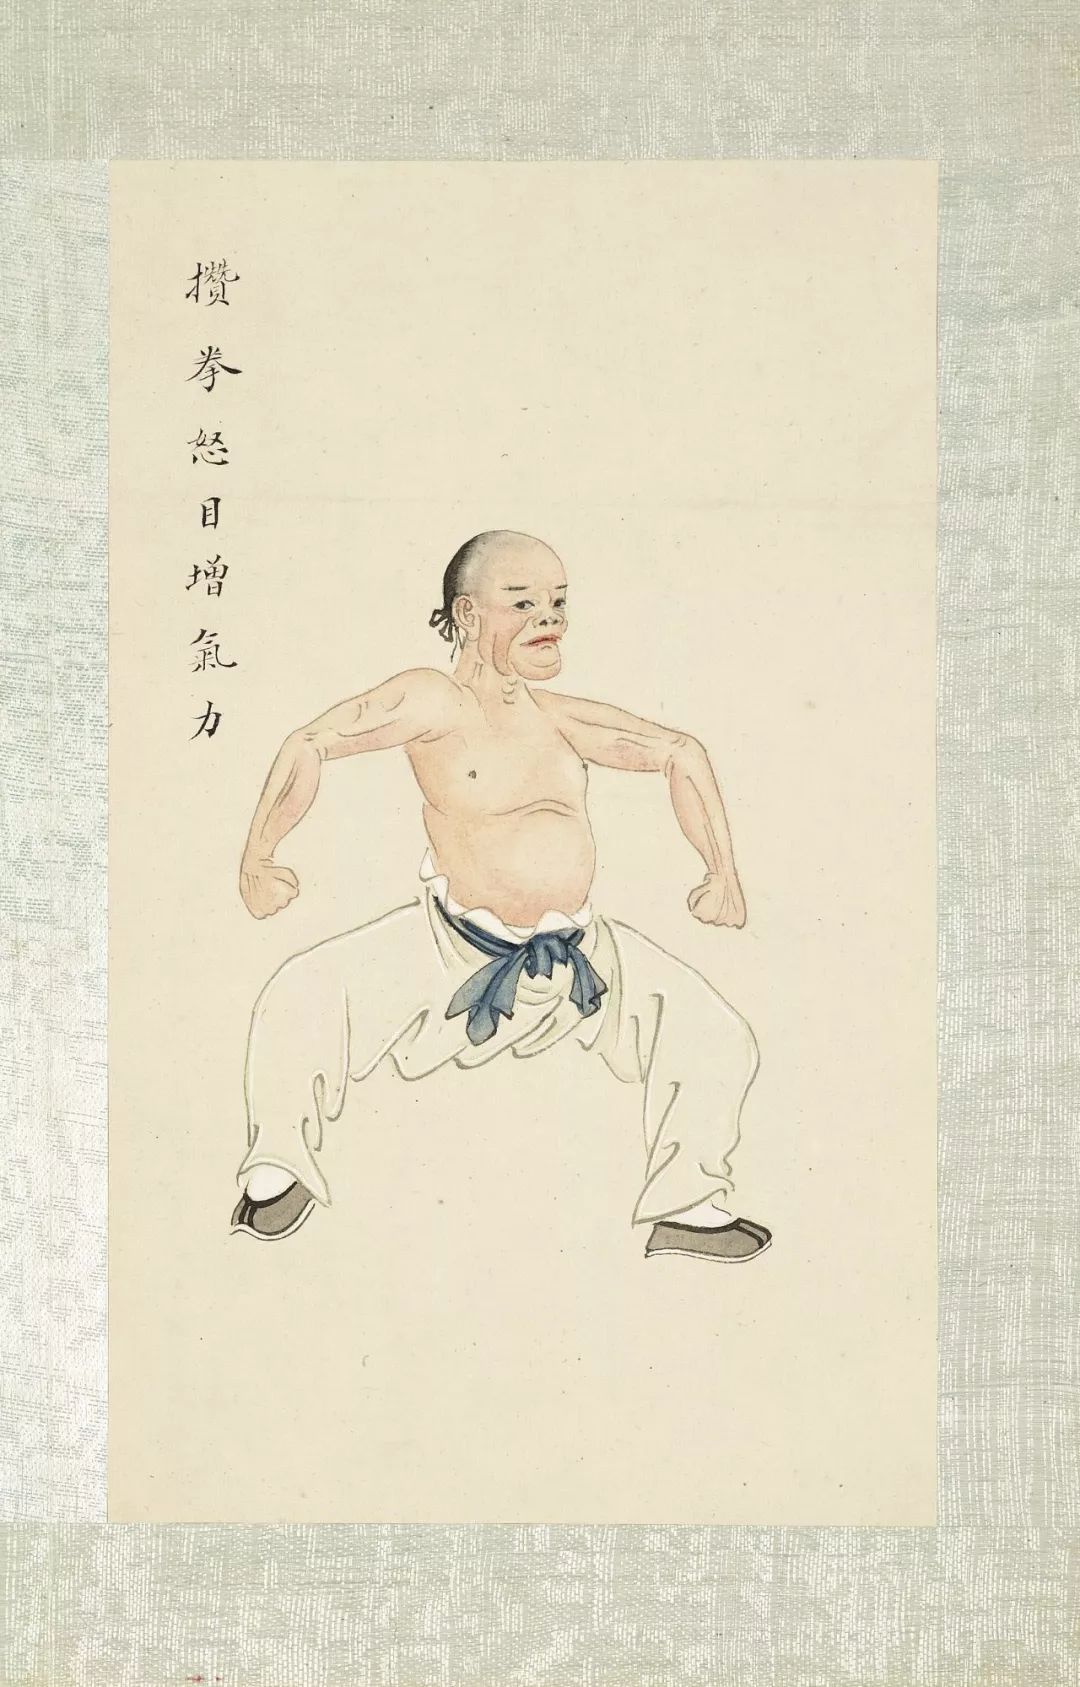 攢拳怒目增氣力